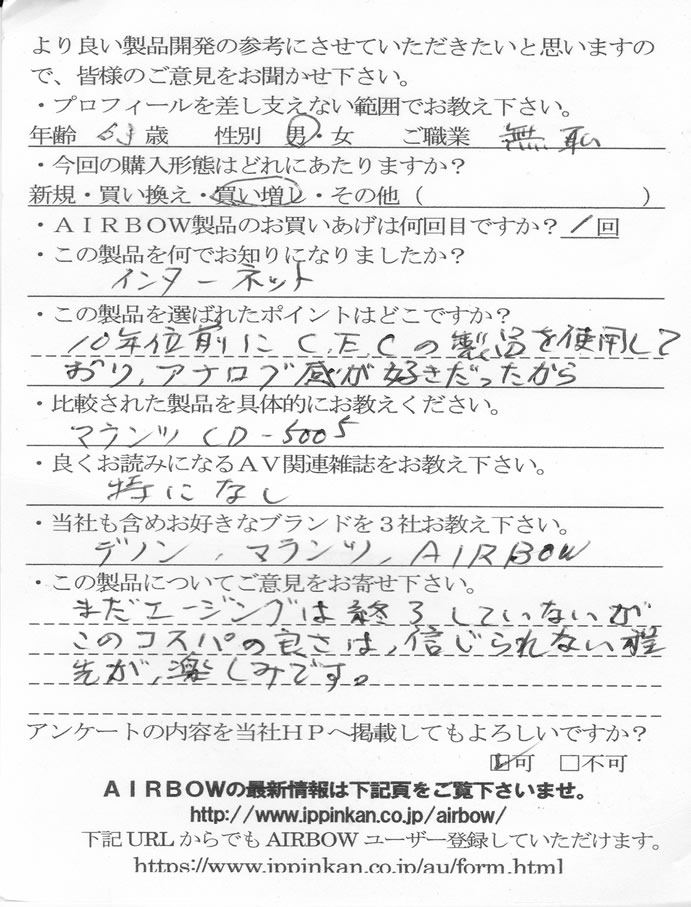 より良い製品開発の参考にさせていただきたいと思いますの
で、皆様のご意見をお聞かせ下さい。
・プロフィールを差し支えない範囲でお教え下さい。
年齢 63 歳 性別 男・女 ご職業 無職
・今回の購入形態はどれにあたりますか？
新規・買い換え・買い増し・その他（ ）
・ＡＩＲＢＯＷ製品のお買いあげは何回目ですか？ 1回
・この製品を何でお知りになりましたか？
インターネット
・この製品を選ばれたポイントはどこですか？
10年位前に C.E.Cの製品を使用して
おり、アナログ感が好きだったから
・比較された製品を具体的にお教えください。
マランツ CD-5005
・良くお読みになるＡＶ関連雑誌をお教え下さい。
特になし
・当社も含めお好きなブランドを３社お教え下さい。
デノン、マランツ、AIRBOW
・この製品についてご意見をお寄せ下さい。
まだエージングは終了していないが
このコスパの良さは、信じられない程
先が、楽しみです。
アンケートの内容を当社ＨＰへ掲載してもよろしいですか？
☑可 □不可
ＡＩＲＢＯＷの最新情報は下記頁をご覧下さいませ。
http://www.ippinkan.co.jp/airbow/
下記 URL からでも AIRBOW ユーザー登録していただけます。
https://www.ippinkan.co.jp/au/form.html